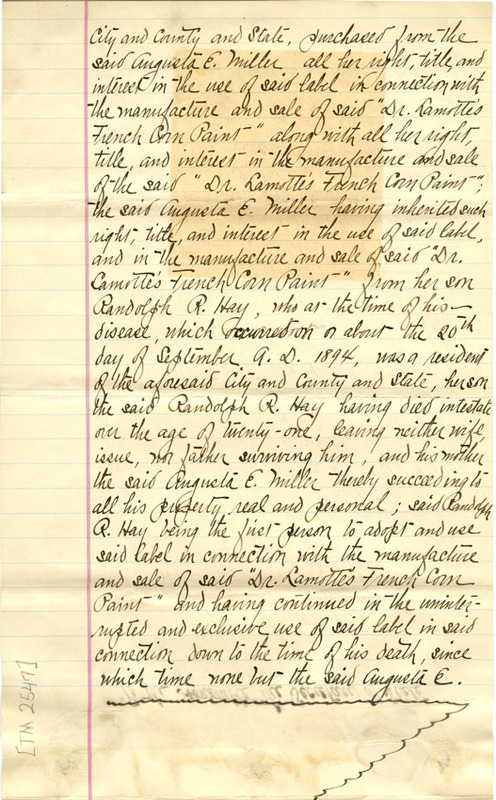 City and County and State, purchased from the
said Augusta E. Miller all her right, title, and
interest in the use of said label in connection with
the manufacture and sale of said "Dr. Lamotte's
French Corn Paint" along with all her right,
title, and interest in the manufacture and sale
of the said "Dr. Lamotte's French Corn Paint";
the said Augusta E. Miller having inherited such
right, title, and interest in the use of said label,
and in the manufacture and sale of said "Dr.
Lamotte's French Corn Paint" from her son
Randolph R. Hay, who at the time of his
disease, which occurred on or about the 20th
day of September A. D. 1894, was a resident
of the aforesaid City and County and State, her son
the said Randolph R. Hay having died intestate
over the age of twenty-one, leaving neither wife,
issue, nor father surviving him, and his mother
the said Augusta E. Miller thereby succeeding to
all his property, real and personal; said Randolph
R. Hay being the first person to adopt and use
said label in connection with the manufacture
and sale of said Dr. Lamotte's French Corn
Paint" and having continued in the uninter-
rupted and exclusive use of said label in said
connection down to the time of his death, since
which time none but the said Augusta E.
[TM 2547]